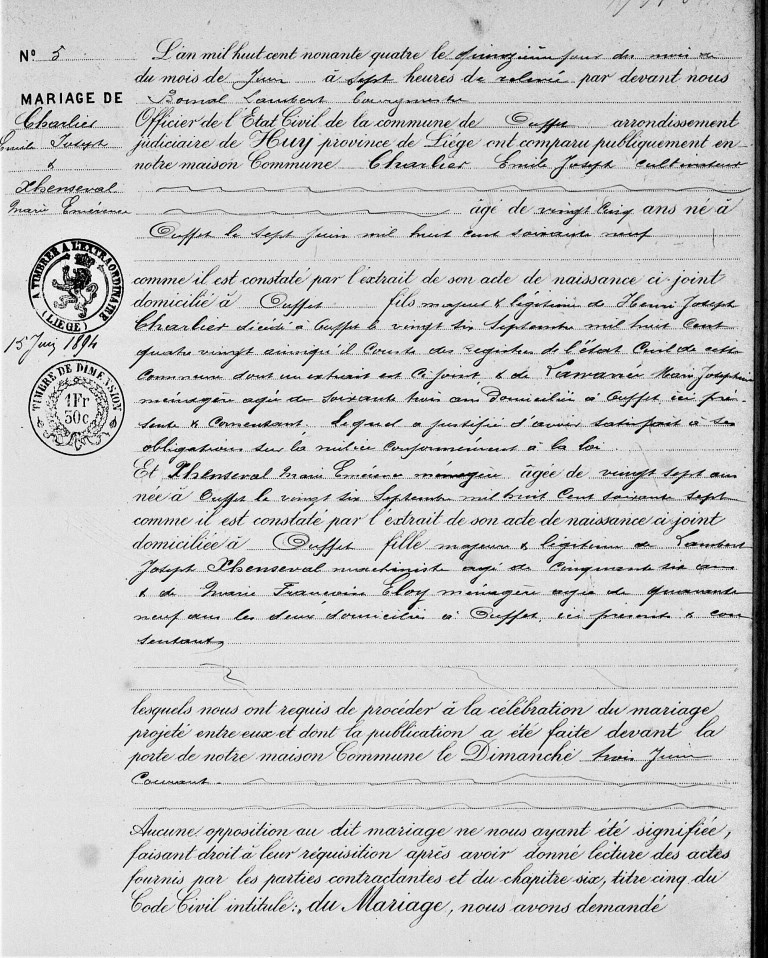 N° 5
MARIAGE DE
Charlier
Emile Joseph
&
Thenseval
Marie Emérence
A TIMBRER A L'EXTRAORDINAIRE
(LIÉGE)
15 Juin 1894
TIMBRE DE DIMENSION
1Fr
30c
L'an mil huit cent nonante quatre le quinzième jour du mois de
du mois de Juin à sept heures de relevée par devant nous
Bomal Lambert Bourgmestre
Officier de l'Etat Civil de la commune de Ouffet arrondissement
judiciaire de Huy province de Liége ont comparu publiquement en
notre maison Commune Charlier Emile Joseph cultivateur
âgé de vingt cinq ans né à
Ouffet le sept Juin mil huit cent soixante neuf
comme il est constaté par l'extrait de son acte de naissance ci-joint
domicilié à Ouffet fils majeur & légitime de Henri Joseph
Charlier décédé à Ouffet le vingt six Septembre mil huit cent
quatre vingt ainsi qu'il conste des registres de l'état civil de cette
Commune dont un extrait est ci joint & de Marie Josephine
ménagère agée de soixante trois ans domiciliée à Ouffet, ici pré-
sente & consentant. Lequel a justifié d'avoir satisfait à ses
obligations sur la milice conformément à la loi
Et Thenseval Marie Emérence ménagère âgée de vingt sept ans
née à Ouffet le vingt six Septembre mil huit cent soixante sept
comme il est constaté par l'extrait de son acte de naissance ci-joint
domiciliée à Ouffet fille majeure & légitime de Lambert
Joseph Thenseval machiniste agé de cinquante six ans
& de Marie Françoise Eloy ménagère agée de quarante
neuf ans les deux domiciliés à Ouffet, ici présents & con
sentants
lesquels nous ont requis de procéder à la célébration du mariage
projeté entre eux et dont la publication a été faite devant la
porte de notre maison Commune le Dimanche trois Juin
Courant.
Aucune opposition au dit mariage ne nous ayant été signifiée,
faisant droit à leur réquisition après avoir donné lecture des actes
fournis par les parties contractantes et du chapitre six, titre cinq du
Code Civil intitulé: du Mariage, nous avons demandé